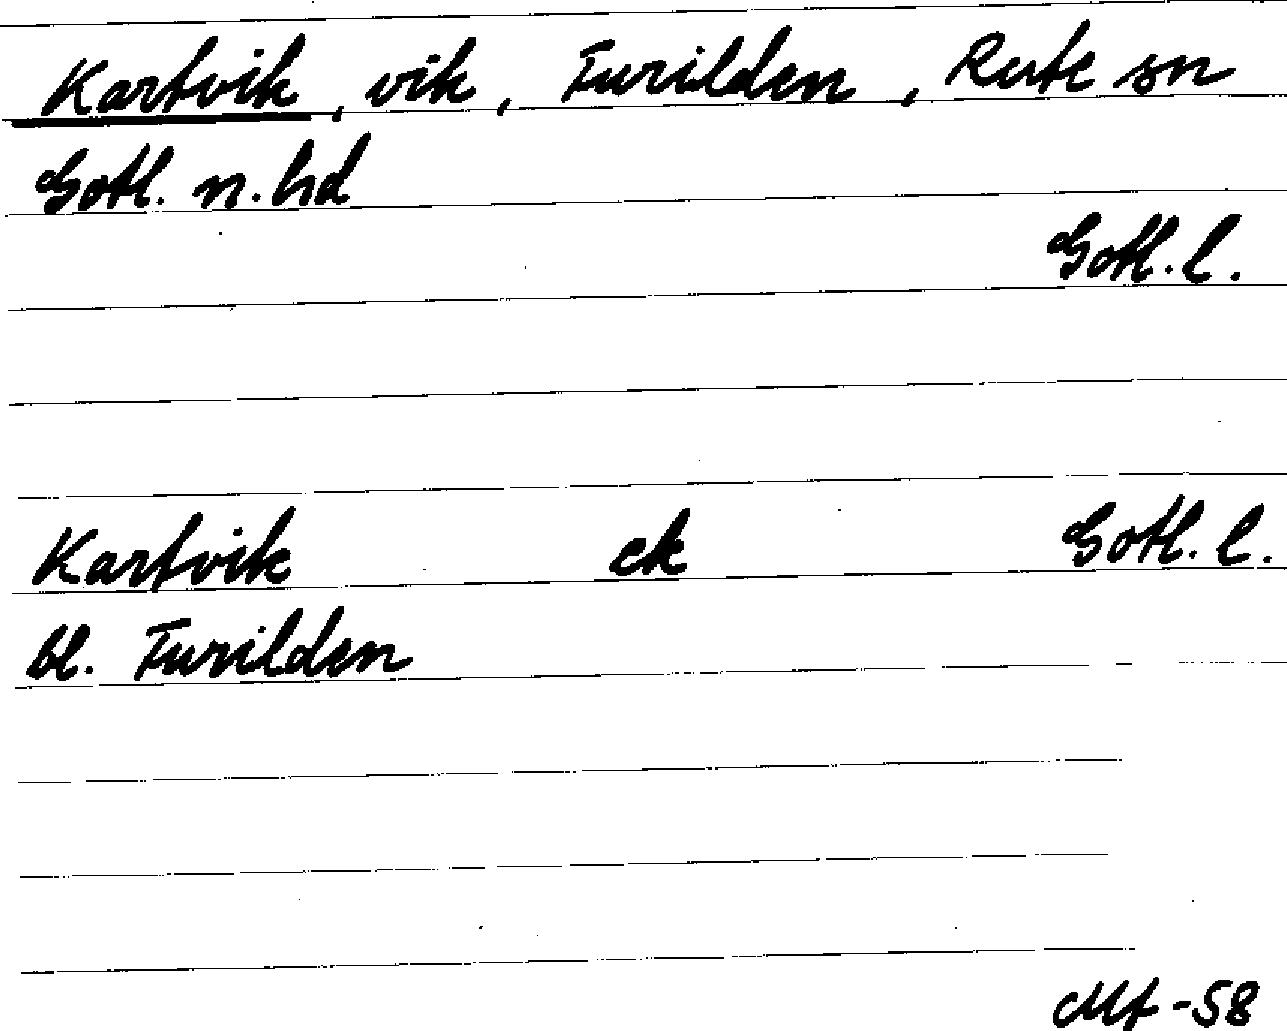 Kartvik, vik, Furilden, Rute sn
Gotl. n. hd
Gotl. l.
Kartvik ek Gotl. l.
bl. Furilden
-58